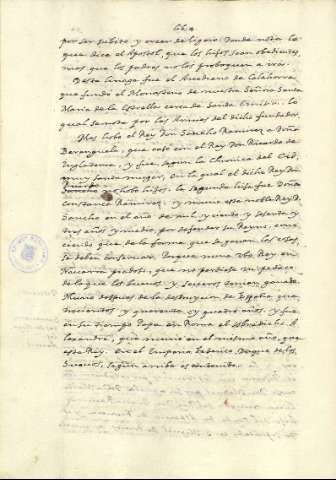 por ser subito, y creer de ligero. Donde nota lo
que dice el Apostol, que los hijos sean obedientes
mas que los padres no los probequen a iras.
Deste linage fue el Arcediano de Calahorra
que fundó el Monasterio de nuestra Señora Santa
Maria de la Estrella cerca de Santa
qual se nota por las Armas del dicho fundador.
Mas hobo el Rey Dn. Sancho Ramirez a Doña
Berenguela, que casó con el Rey Dn. Ricardo de
Inglaterra, y fue, segun la chronica del Cid,
muy santa muger, en la qual el dicho Rey Dn.
no hobo hijos. la segunda hija fue Doña
Constanza Ramirez, y murio este noble Rey D.
Sancho en el año de mil, y ciento, y setenta, y
tres años, y medio, por defender su Reyno, cono
ciendo que de la forma que se ganan los estos,
se deben conservar. Porque nunca obo Rey en
Navarra que no perdiese un pedazo
de lo que los buenos, y Severos havian ganado.
Murio despues de la destruycion de España, que
trecientos, y quarenta, y quatro años. y fue
en su tiempo Papa en Roma el
lexandre, que murio en el mismo año, que
este Rey. en el Imperio Federico, Duque de los
Suevos, segun arriba es contento.